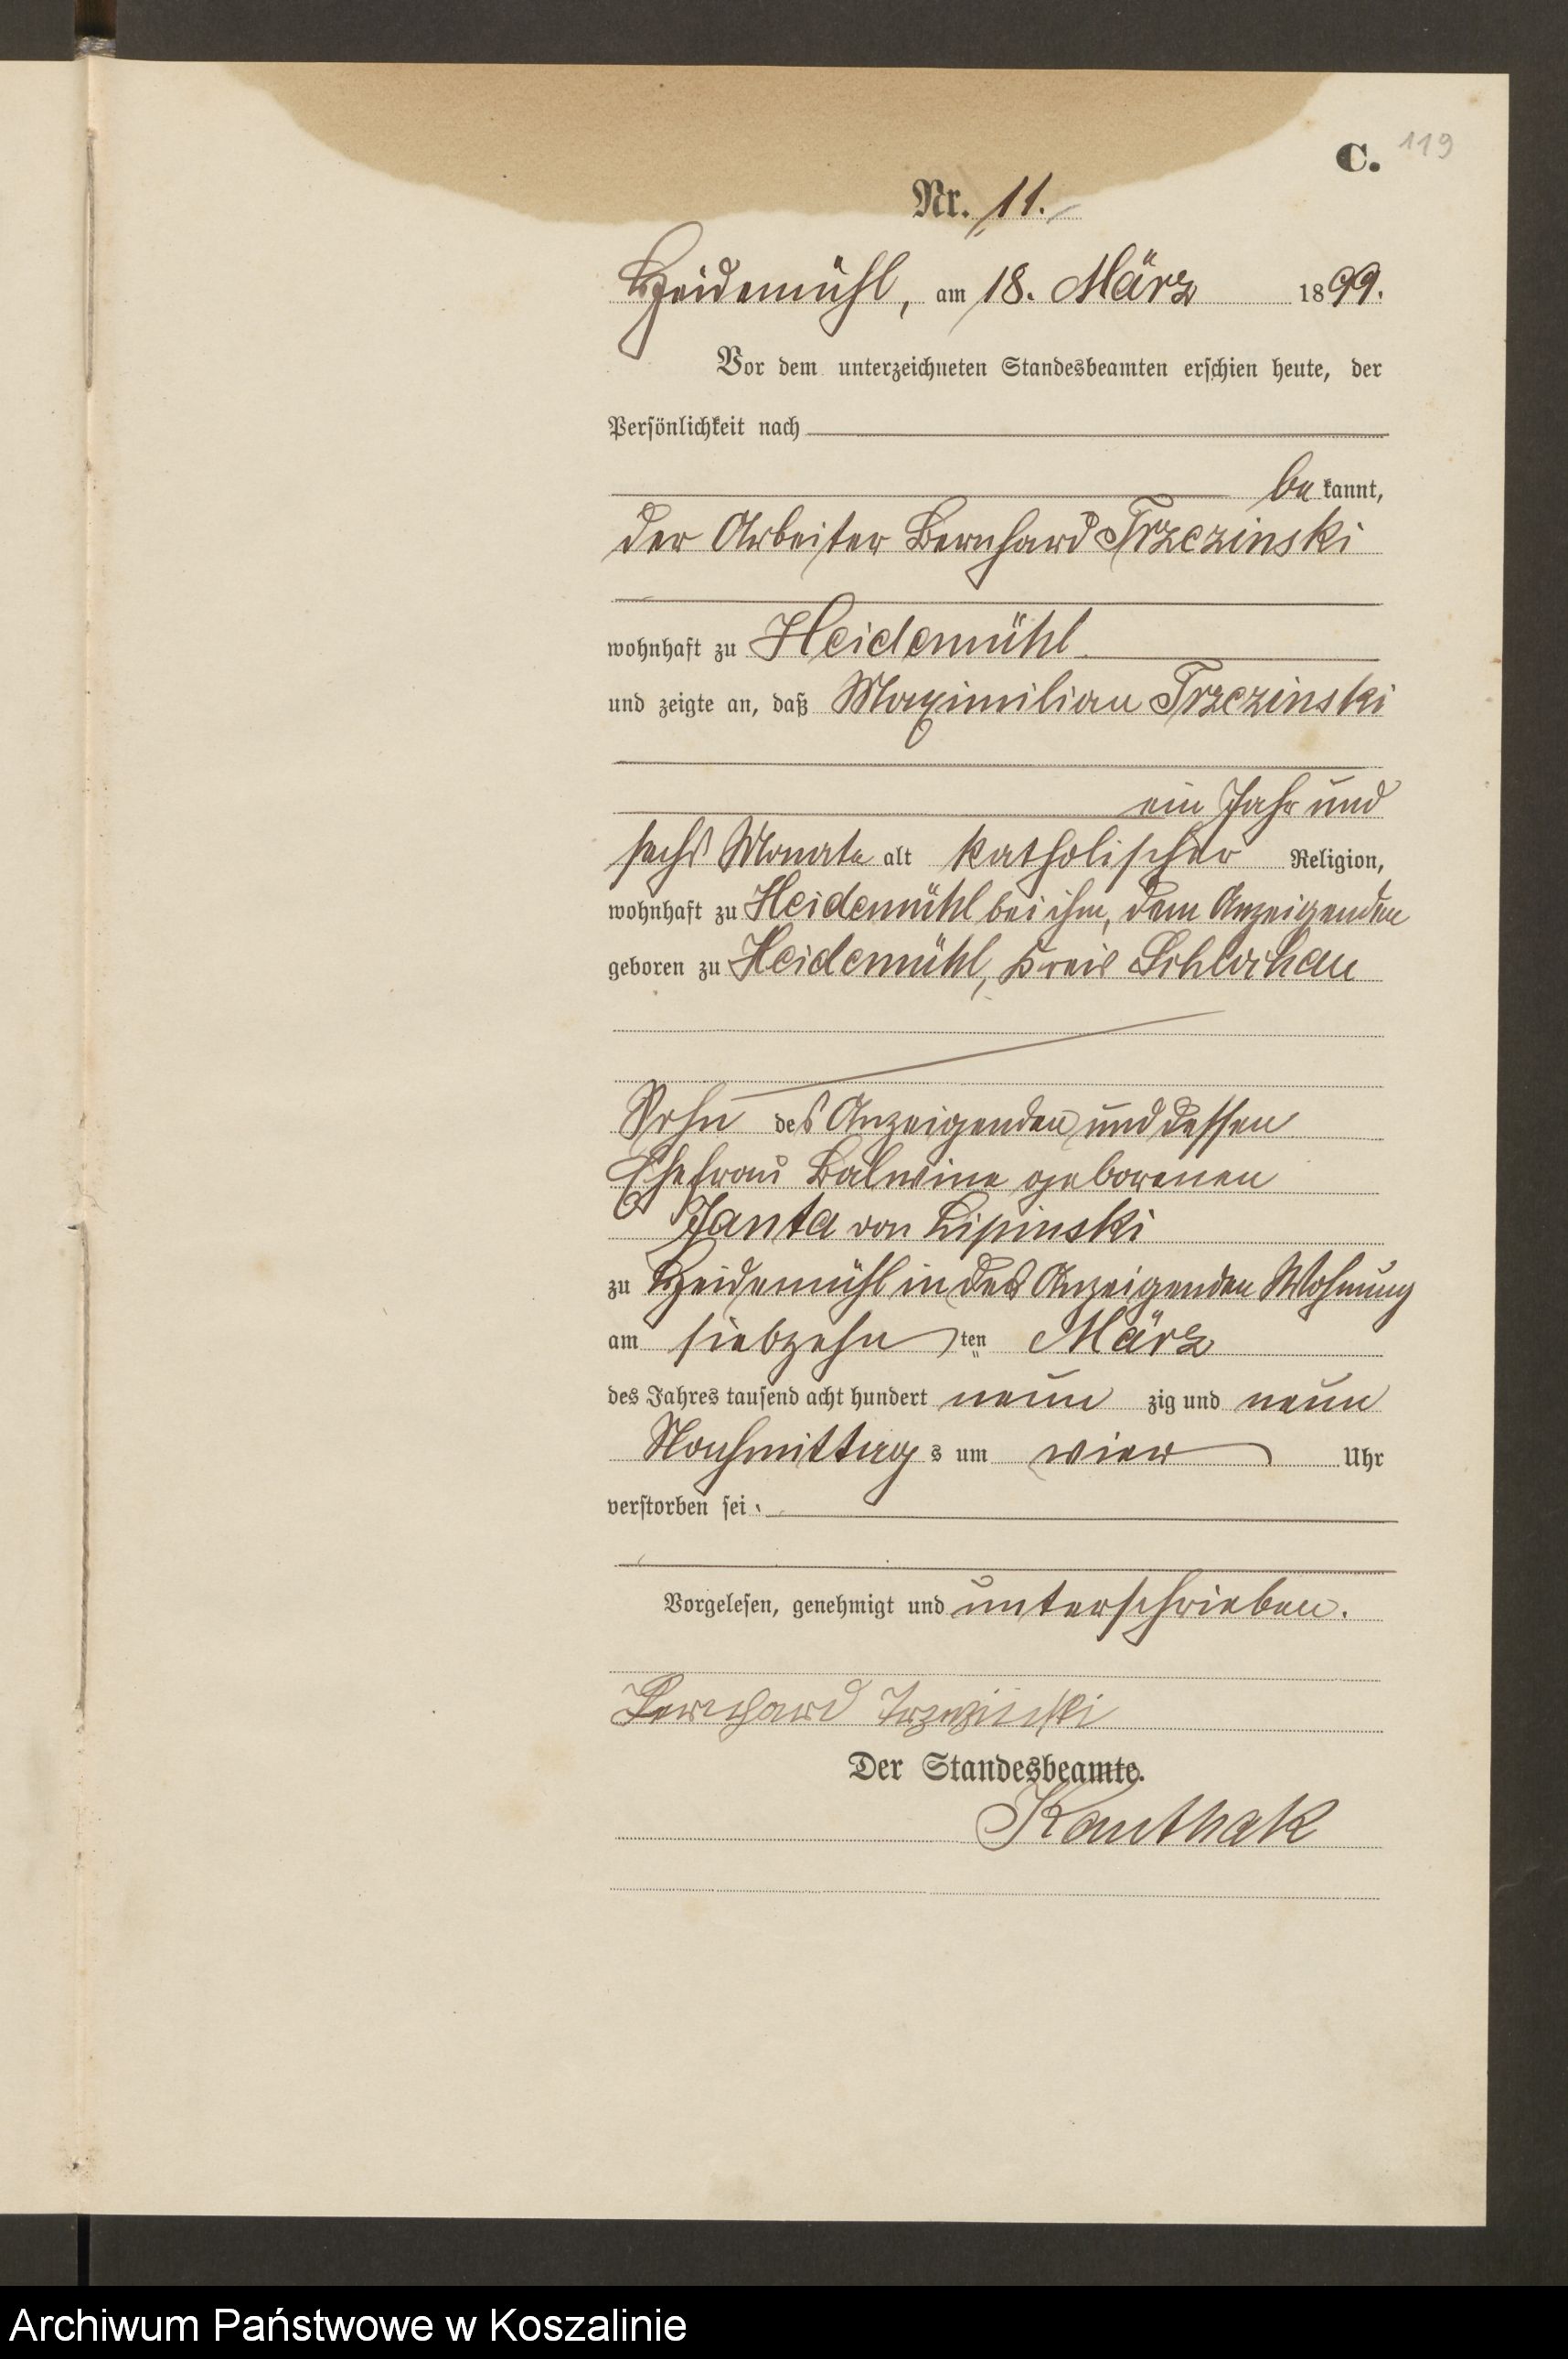 C. 119
Nr. 11.
Heidemühl, am 18. März 1899.
Vor dem unterzeichneten Standesbeamten erschien heute, der
Persönlichkeit nach
be kannt,
der Arbeiter Bernhard Trzczinski
wohnhaft zu Heidemühl
und zeigte an, daß Maximilian Trzczinski
ein Jahr und
sechs Monate alt katholischer Religion,
wohnhaft zu Heidemühl bei ihm, dem Anzeigenden
geboren zu Heidemühl, Kreis Schlochau
Sohn des Anzeigenden und dessen
Ehefrau Balwina geborenen
Janta von Lipinski
zu Heidemühl in des Anzeigenden Wohnung
am siebzehn ten März
des Jahres tausend acht hundert neun zig und neun
Nachmittag s um vier Uhr
verstorben sei.
Vorgelesen, genehmigt und unterschrieben.
Bernhard
Der Standesbeamte.
Kauthak
Archiwum Państwowe w Koszalinie